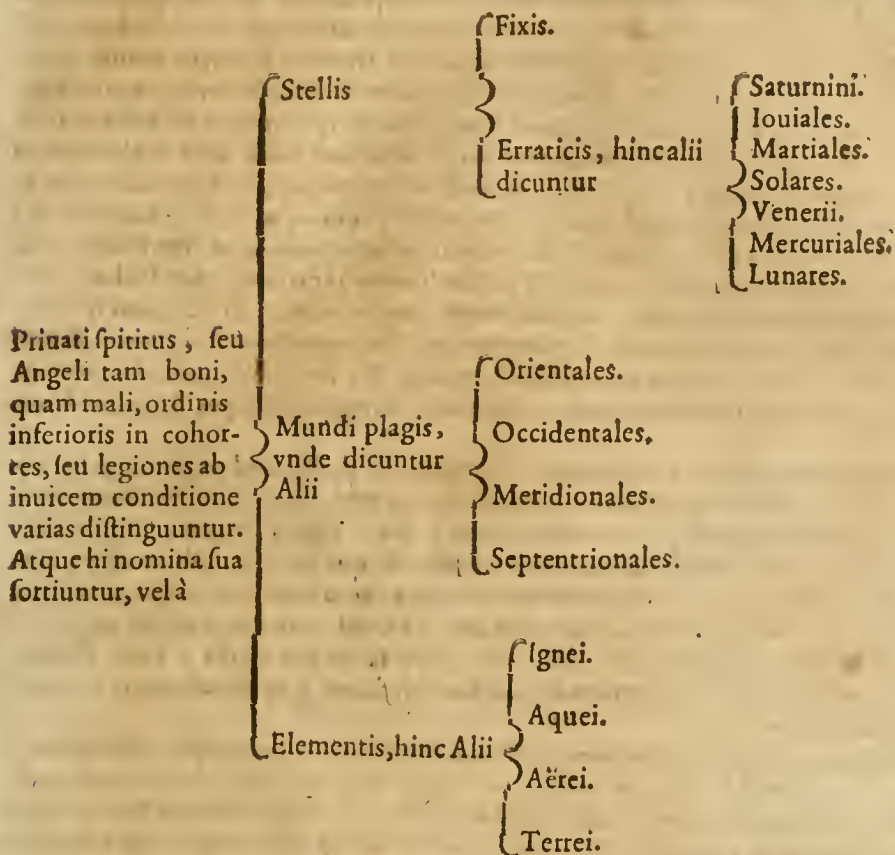 Priuati ſpititus, ſeu
Angeli tam boni,
quam mali, ordinis
inferioris in cohor-
tes, ſeu legiones ab
inuicem conditione
varias diſtinguuntur.
Atque hi nomina ſua
ſortiuntur, vel à
Stellis
Fixis.
Erraticis, hinc alii
dicuntur
Saturnini.
Iouiales.
Martiales.
Solares.
Venerii.
Mercuriales.
Lunares.
Mundi plagis,
vnde dicuntur
Alii
Orientales.
Occidentales.
Meridionales.
Septentrionales.
Elementis, hinc Alii
Ignei.
Aquei.
Aërei.
Terrei.